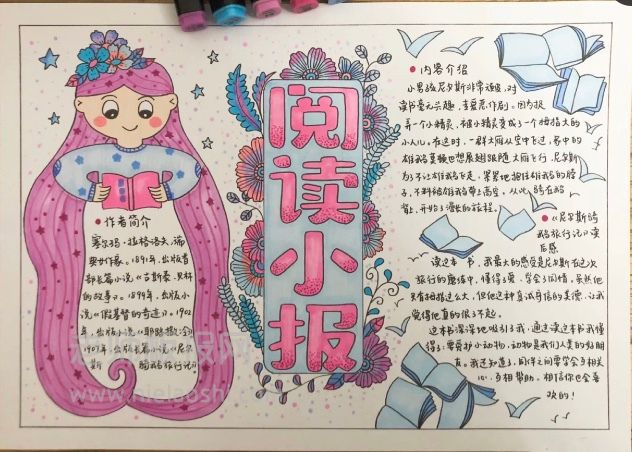 阅读小报
●作者简介
塞尔玛·拉格洛夫,瑞
典女作家。1891年,出版首
部长篇小说《古斯泰·贝林
的故事》。1897年,出版小
说《假基督的奇迹》。1902
年,出版小说《耶路撒冷》
1907年,出版长篇小说《尼尔
斯骑鹅旅行记》
●内容介绍
小男孩尼尔斯非常调皮,对
读书毫无兴趣,喜爱恶作剧。因为捉
弄一个小精灵,被小精灵变成了一个拇指大的
小人儿。在这时,一群大雁从空中飞过,家中的
雄鹅莫顿也想展翅跟随大雁飞行,尼尔斯
为了不让雄鹅飞走,紧紧地抱住雄鹅的脖
子,不料给雄鹅带上高空。从此,骑在鹅
背上,开始了漫长的旅程。
●《尼尔斯骑
鹅旅行记》读
后感
读这本书,我最大的感受是尼尔斯在这次
旅行的磨练中,懂得了爱,学会了同情,虽然他
只有拇指这么大,但他这种真诚可信的美德,让我
觉得他真的很了不起。
这本书深深地吸引了我,通过读这本书我懂
得了:要爱护小动物,动物是我们人类的好朋
友。我还知道了,同伴之间要学会互相关
心,互相帮助,相信你也会喜
欢的!